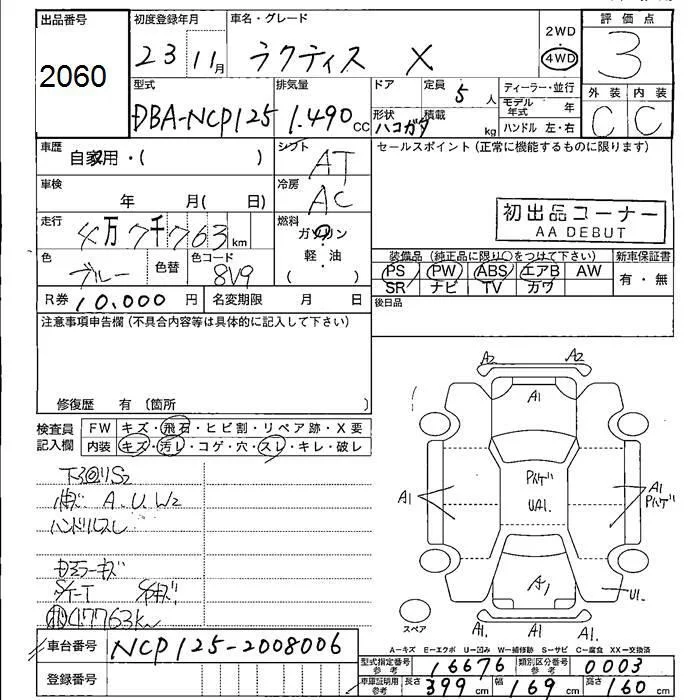 出品番号 初度登録年月 車名・グレード 評価点
2060 23 11月 ラクティス X 2WD 4WD 3
型式 排気量 ドア 定員 5人 ディーラー・並行 外装 内装
DBA-NCP125 1.490cc 形状 ハコガタ 積載 kg モデル年式 年 C C
ハンドル 左・右
車歴 自家用・( ) シフト AT セールスポイント(正常に機能するものに限ります)
車検 年 月( 日) 冷房 AC
初出品コーナー
AA DEBUT
走行 4万7千763km 燃料 ガソリン・軽油 ( )
色 ブルー 色替 色コード 8V9
装備品(純正品に限り○をつけて下さい) 新車保証書
PS PW ABS エアB AW 有・無
SR ナビ TV カワ
R券 10,000円 名変期限 月 日 後日品
注意事項申告欄(不具合内容等は具体的に記入して下さい)
修復歴 有 (箇所 )
検査員記入欄 FW キズ・飛石・ヒビ割・リペア跡・X要
内装 キズ・汚レ・コゲ・穴・スレ・キレ・破レ
下回りS2
A.U.W2
ハンドルスレ
キズ
47763km
A2 A2
A1
Pハゲ
UA1.
A1 A1
Pハゲ
A1
U1.
A1. A1 A1.
スペア
A−キズ E−エクボ U−凹み W−補修跡 S−サビ C−腐食 XX−交換済
車台番号 NCP125-2008006
型式指定番号 参考 16676 類別区分番号 参考 0003
登録番号
車庫証明用 参考 長さ 399cm 幅 169cm 高さ 160cm